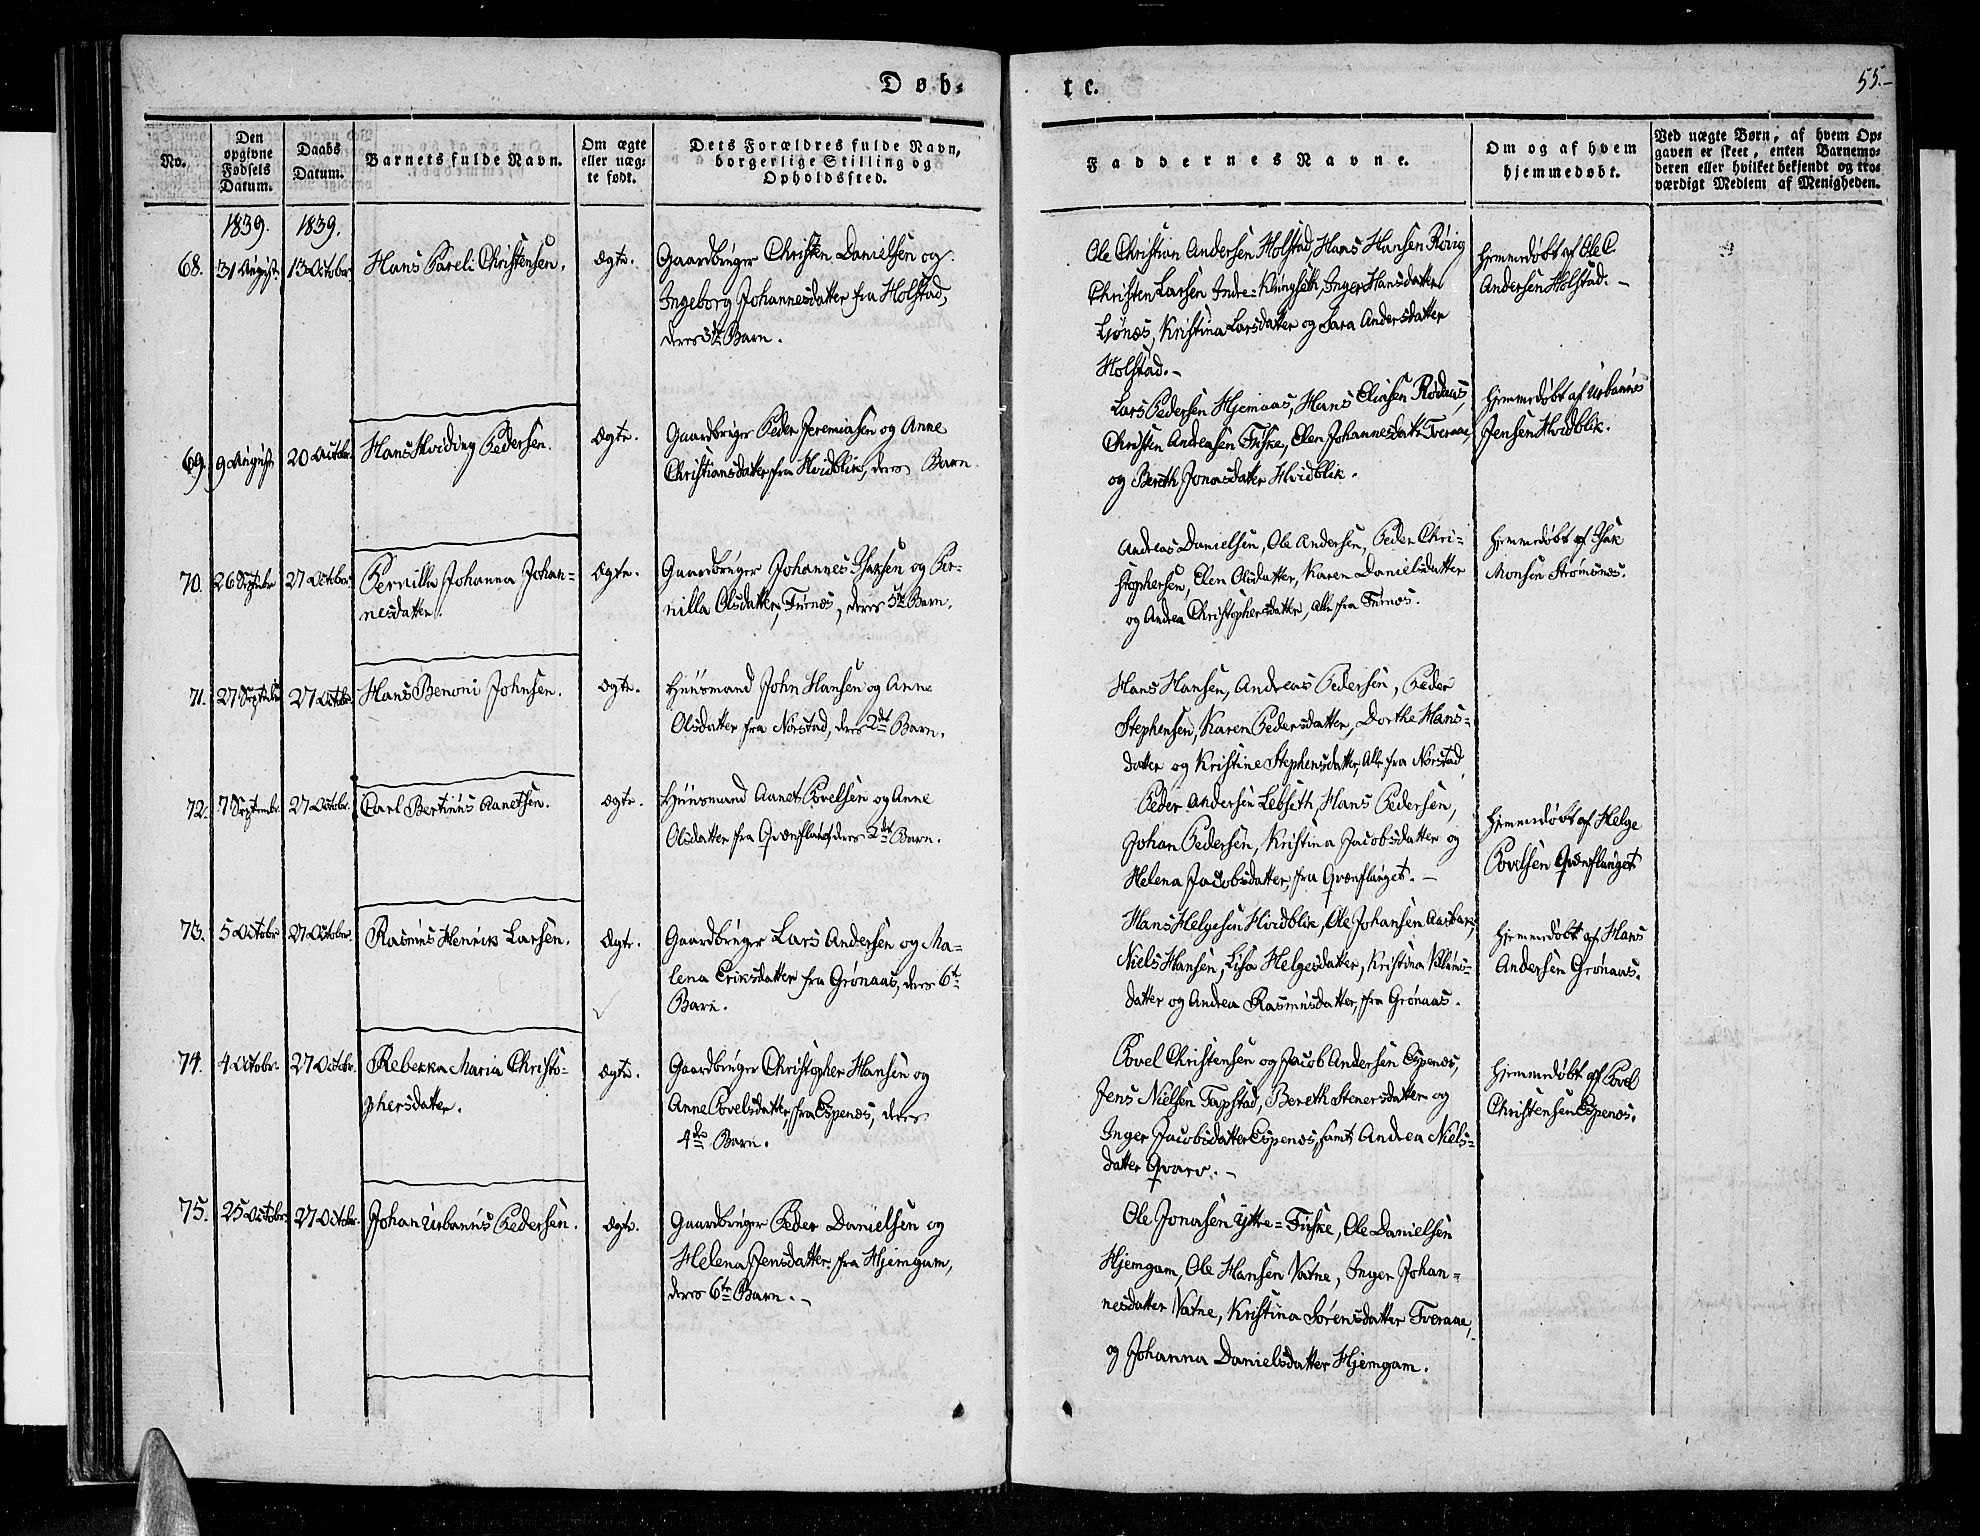 Døb-
te.
55.-
No.
Den opgivne Fødsels Datum.
Daabs Datum.
Barnets fulde Navn.
Om ægte eller uæg-
te født.
Dets Forældres fulde Navn,
borgerlige Stilling og
Opholdssted.
Faddernes Navne.
Om og af hvem
hjemmedøbt.
Ved uægte Børn, af hvem Op-
gaven er skeet, enten Barnemo-
deren eller hvilket bekjendt og tro-
værdigt Medlem af Menigheden.
1839. 1839.
68. 31 August. 13 October Hans Pareli Christensen. Ægte.
Gaardbruger Christen Danielsen og
Ingeborg Johannesdatter fra Holstad,
deres 3die Barn.
Ole Christian Andersen Holstad, Hans Hansen Røvig
Christen Larsen Indre-Klungseth, Inger Hansdatter
Liønæs, Kristina Larsdatter og Sara Andersdatter
Holstad.-
Hjemmedøbt af Ole C.
Andersen Holstad. -
69. 9 August 20 Octobr. Hans Hviding Pedersen. Ægte.
Gaardbruger Peder Jeremiasen og Anne
Christiansdatter fra Hvidblik, deres Barn.
Lars Pedersen Hjemaas, Hans Eliasen Rødaas,
Christen Andersen Fiske, Elen Johannesdatt: Tveraae,
og Bereth Jonasdatter Hvidblik.
Hjemmedøbt af Urbanus
Jensen Hvidblik.
70. 26 Septbr 27 October Pernilla Johanna Johan-
nesdatter. Ægte.
Gaardbruger Johannes Isaksen og Per-
nilla Olsdatter, Furnes, deres 5te Barn.
Andreas Danielsen, Ole Andersen, Peder Chri-
stophersen, Elen Olsdatter, Karen Danielsdatter
og Andrea Christophersdatter, alle fra Furnes.
Hjemmedøbt af Isak
Monsen Strømsnes.
71. 27 Septembr 27 Octobr. Hans Benoni Johnsen. Ægte.
Huusmand John Hansen og Anne
Olsdatter fra Norstad, deres 2det Barn.
Hans Hansen, Andreas Pedersen, Peder
Stephensen, Karen Pedersdatter, Dorthe Hans-
datter og Kristine Stephensdatter, Alle fra Norstad
72. 7 Septembr. 27 Octobr. Carl Bertinus Aanetsen. Ægte.
Huusmand Aanet Povelsen og Anne
Olsdatter fra Qvænflaaget deres 2det Barn.
Peder Andersen Lebseth, Hans Pedersen,
Johan Pedersen, Kristina Jacobsdatter og
Helena Jacobsdatter, fra Qvænflaaget. -
Hjemmedøbt af Helge
Povelsen Qvænflaaget
73. 5 Octobr 27 Octobr. Rasmus Henrik Larsen. Ægte.
Gaardbruger Lars Andersen og Ma-
lena Eriksdatter fra Grønaas, deres 6te
Barn.
Hans Helgesen Hvidblik, Ole Johansen Aasbak,
Niels Hansen, Lisa Helgesdatter, Kristina
datter og Andrea Rasmusdatter, fra Grønaas.
Hjemmedøbt af Hans
Andersen Grønaas.
74. 4 Octobr. 27 Octobr. Rebekka Maria Christo-
phersdatter. Ægte.
Gaardbruger Christopher Hansen og
Anne Povelsdatter, fra Espenes, deres
4de Barn.
Povel Christensen og Jacob Andersen Espenes,
Jens Nielsen Tapstad, Bereth Stenersdatter og
Inger Jacobsdatter Espenes, samt Andrea Niels-
datter Qvarv. -
Hjemmedøbt af Povel
Christensen Espenes.
75. 25 Octobr. 27 Octobr. Johan Urbanus Pedersen. Ægte.
Gaardbruger Peder Danielsen og
Helena Jensdatter fra Hjemgam,
deres 6te Barn. -
Ole Jonasen Yttre-Fiske, Ole Danielsen
Hjemgam, Ole Hansen Vatne, Inger Johan-
nesdatter Vatne, Kristina Sørensdatter Tveraae,
og Johanna Danielsdatter Hjemgam.